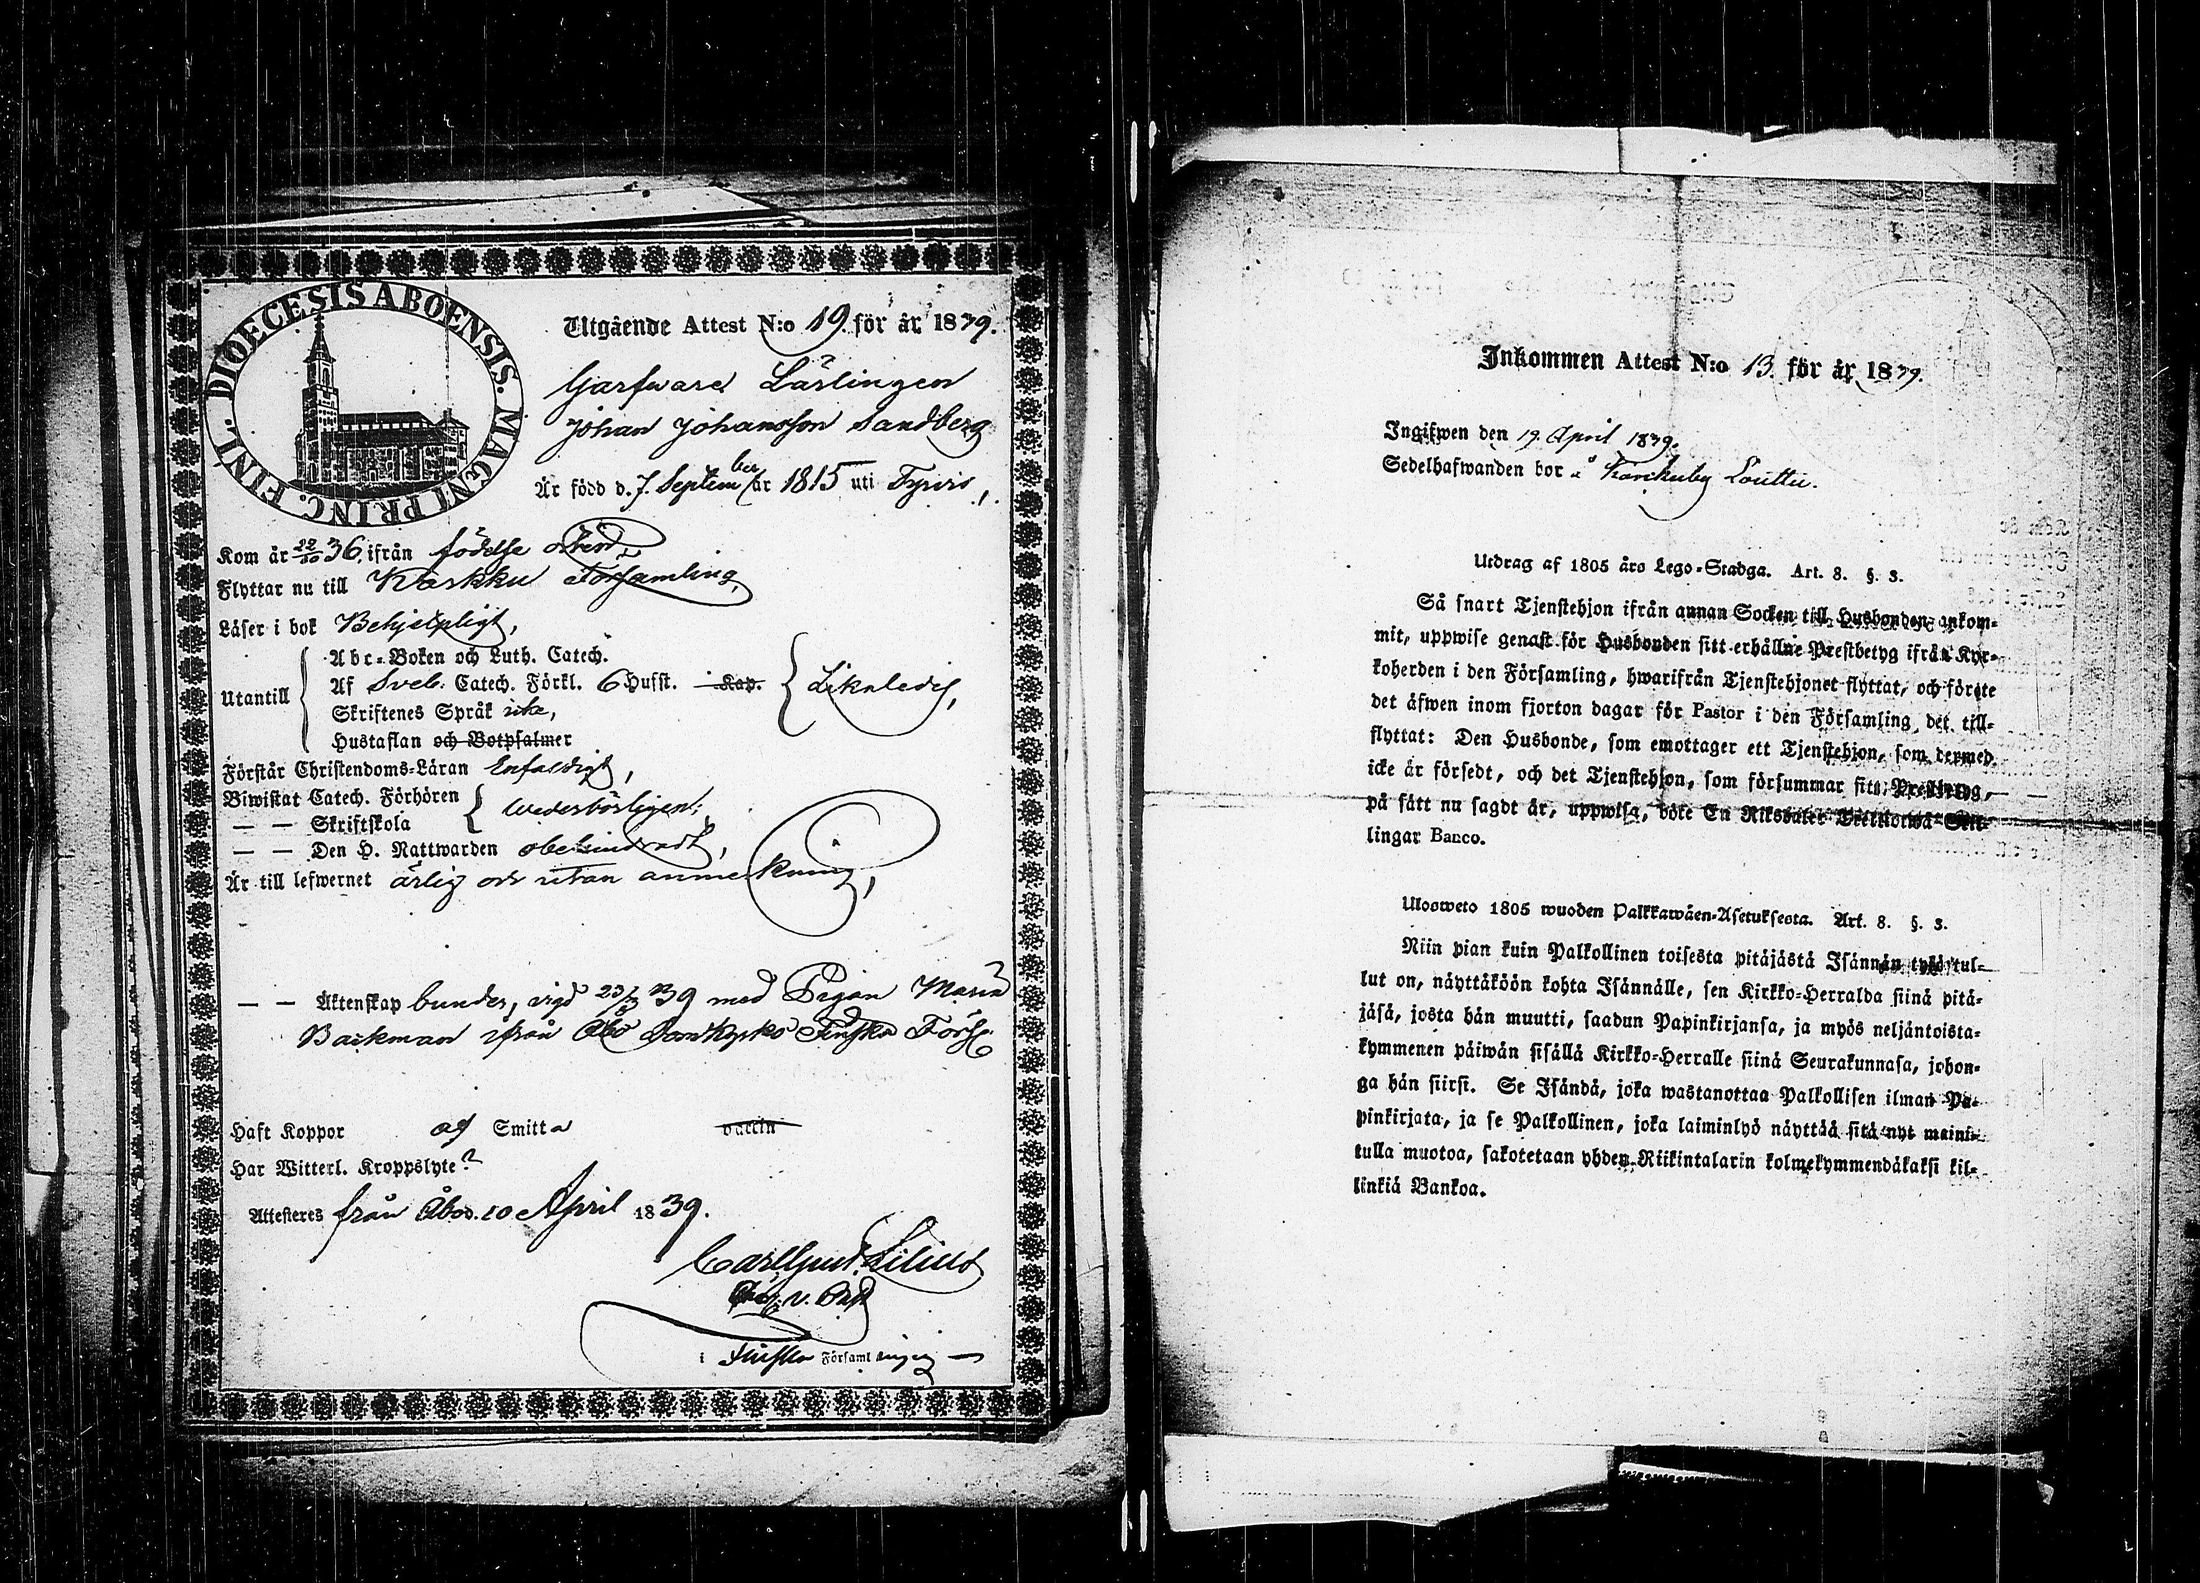 DIOECESIS ABOENSIS. MAGNI PRINC. FINL.
Utgående Attest N:o 19. för år 1839.
Garfware Lärlingen
Johan Johansson Sandberg
Är född d. 7. September år 1815 uti Tyrvis,
Kom år 36, ifrån födelse orten,
Flyttar nu till Karkku Församling,
Läser i bok Behjelpligt,
Utantill
Abc-Boken och Luth. Catech.
Af Sveb. Catech. Förkl. 6 Hufst. Kap. Likaledes,
Skriftenes Språk icke,
Hustaflan och Botpsalmer
Förstår Christendoms-Läran Enfaldigt,
Biwistat Catech. Förhören wederbörligen;
— — Skriftskola
— — Den H. Nattwarden obehindradt,
Är till lefwernet ärlig och utan anmerkning,
— — Äktenskap bunden, vigd 23/3 39 med Pigan Maria
Backman ifrån Åbo Domkyrko Finska Förs.
Haft Koppor af Smitta vaccin
Har Witterl. Kroppslyte?
Attesteras från Åbo d. 10 April 1839.
Carl Gust. Lilius
v. Past
i Finska Församlingen
Inkommen Attest N:o 13. för år 1839.
Ingifwen den 19 April 1839.
Sedelhafwanden bor å Karkuby Louttu.
Utdrag af 1805 års Lego-Stadga. Art. 8. §. 3.
Så snart Tjenstehjon ifrån annan Socken till Husbonden ankom-
mit, uppwise genast för Husbonden sitt erhållne Prestbetyg ifrån Kyr-
koherden i den Församling, hwarifrån Tjenstehjonet flyttat, och förete
det äfwen inom fjorton dagar för Pastor i den Församling det till-
flyttat: Den Husbonde, som emottager ett Tjenstehjon, som dermed
icke är försedt, och det Tjenstehjon, som försummar sitt Prestbetyg,
på sätt nu sagdt är, uppwisa, böte En Riksdaler Trettiotwå Skil-
lingar Banco.
Ulosweto 1805 wuoden Palkkawäen-Asetuksesta. Art. 8. §. 3.
Niin pian kuin Palkollinen toisesta pitäjästä Isännän tygö tul-
lut on, näyttäköön kohta Isännälle, sen Kirkko-Herralda siinä pitä-
jäsä, josta hän muutti, saadun Papinkirjansa, ja myös neljäntoista-
kymmenen päiwän sisällä Kirkko-Herralle siinä Seurakunnasa, johon-
ga hän siirsi. Se Isändä, joka wastanottaa Palkollisen ilman Pa-
pinkirjata, ja se Palkollinen, joka laiminlyö näyttää sitä nyt maini-
tulla muotoa, sakotetaan yhden Riikintalarin kolmekymmendäkaksi kil-
linkiä Bankoa.